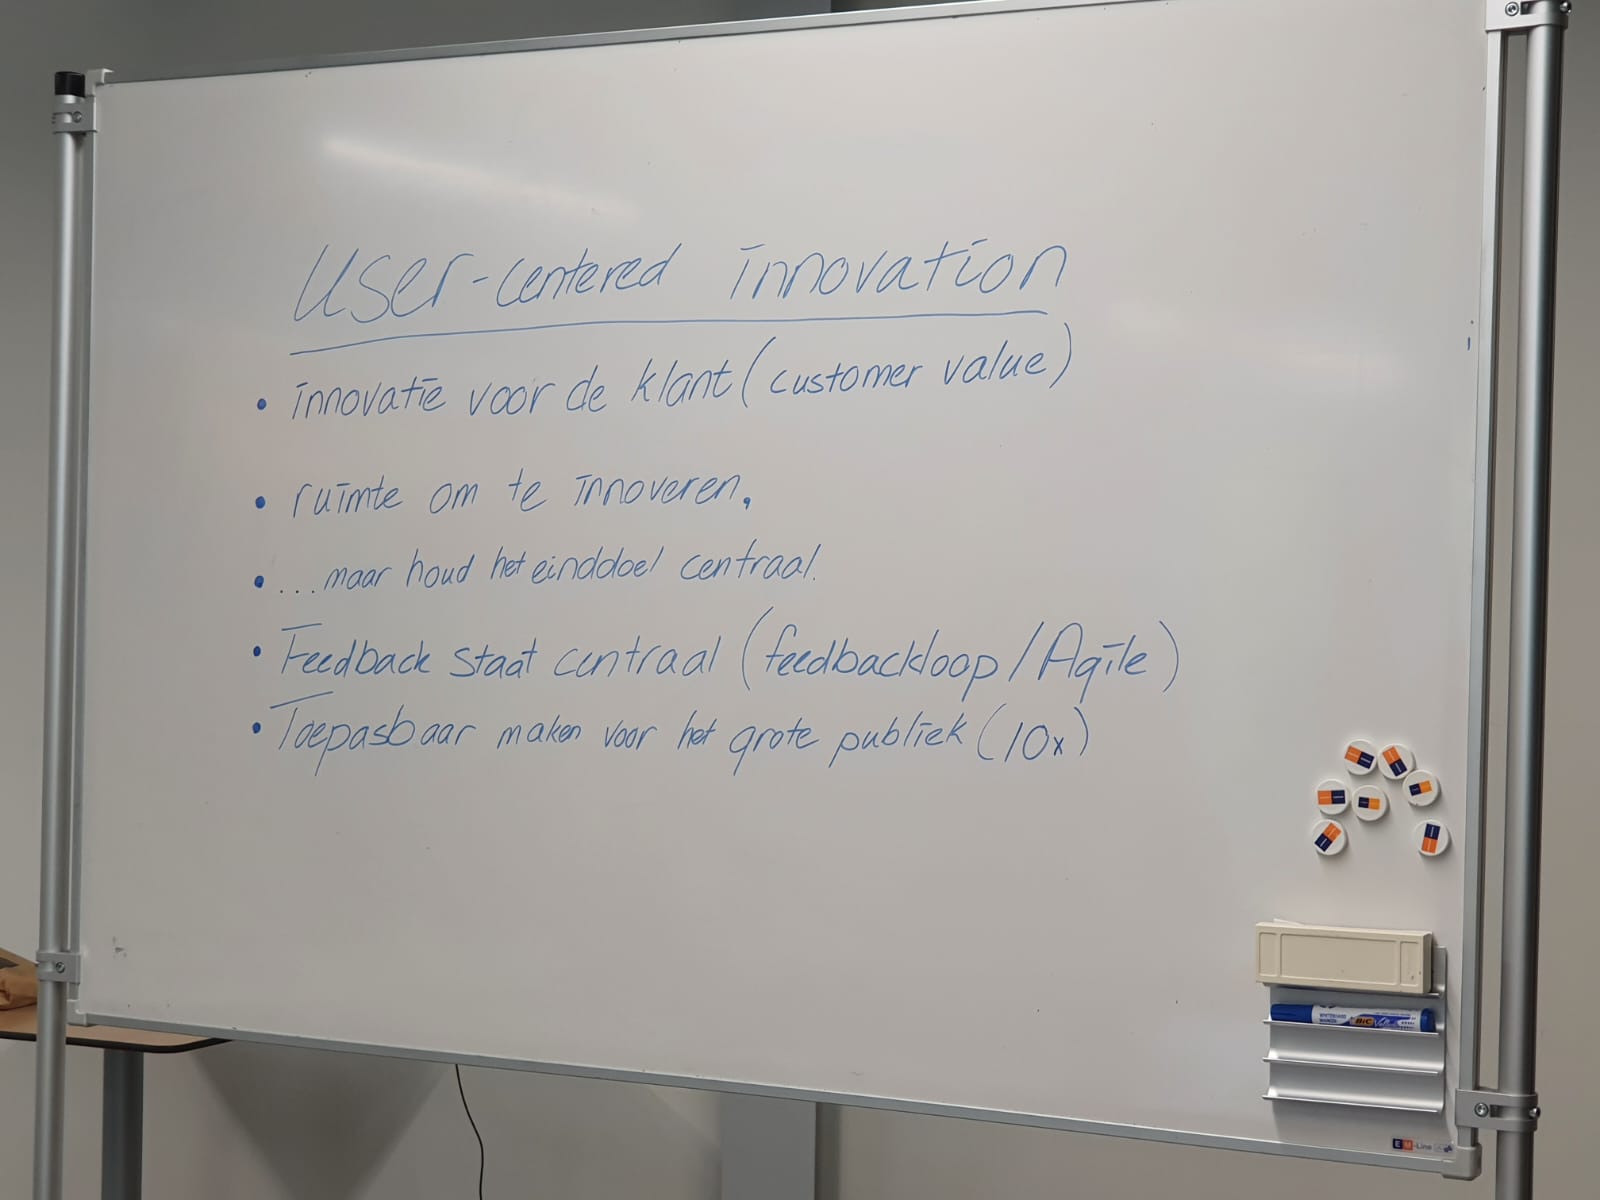 User-centered innovation
• innovatie voor de klant (customer value)
• ruimte om te innoveren,
• ...maar houd het einddoel centraal.
• Feedback staat centraal (feedbackloop/Agile)
• Toepasbaar maken voor het grote publiek (10x)
WHITEBOARD MARKER BIC
EM-Line